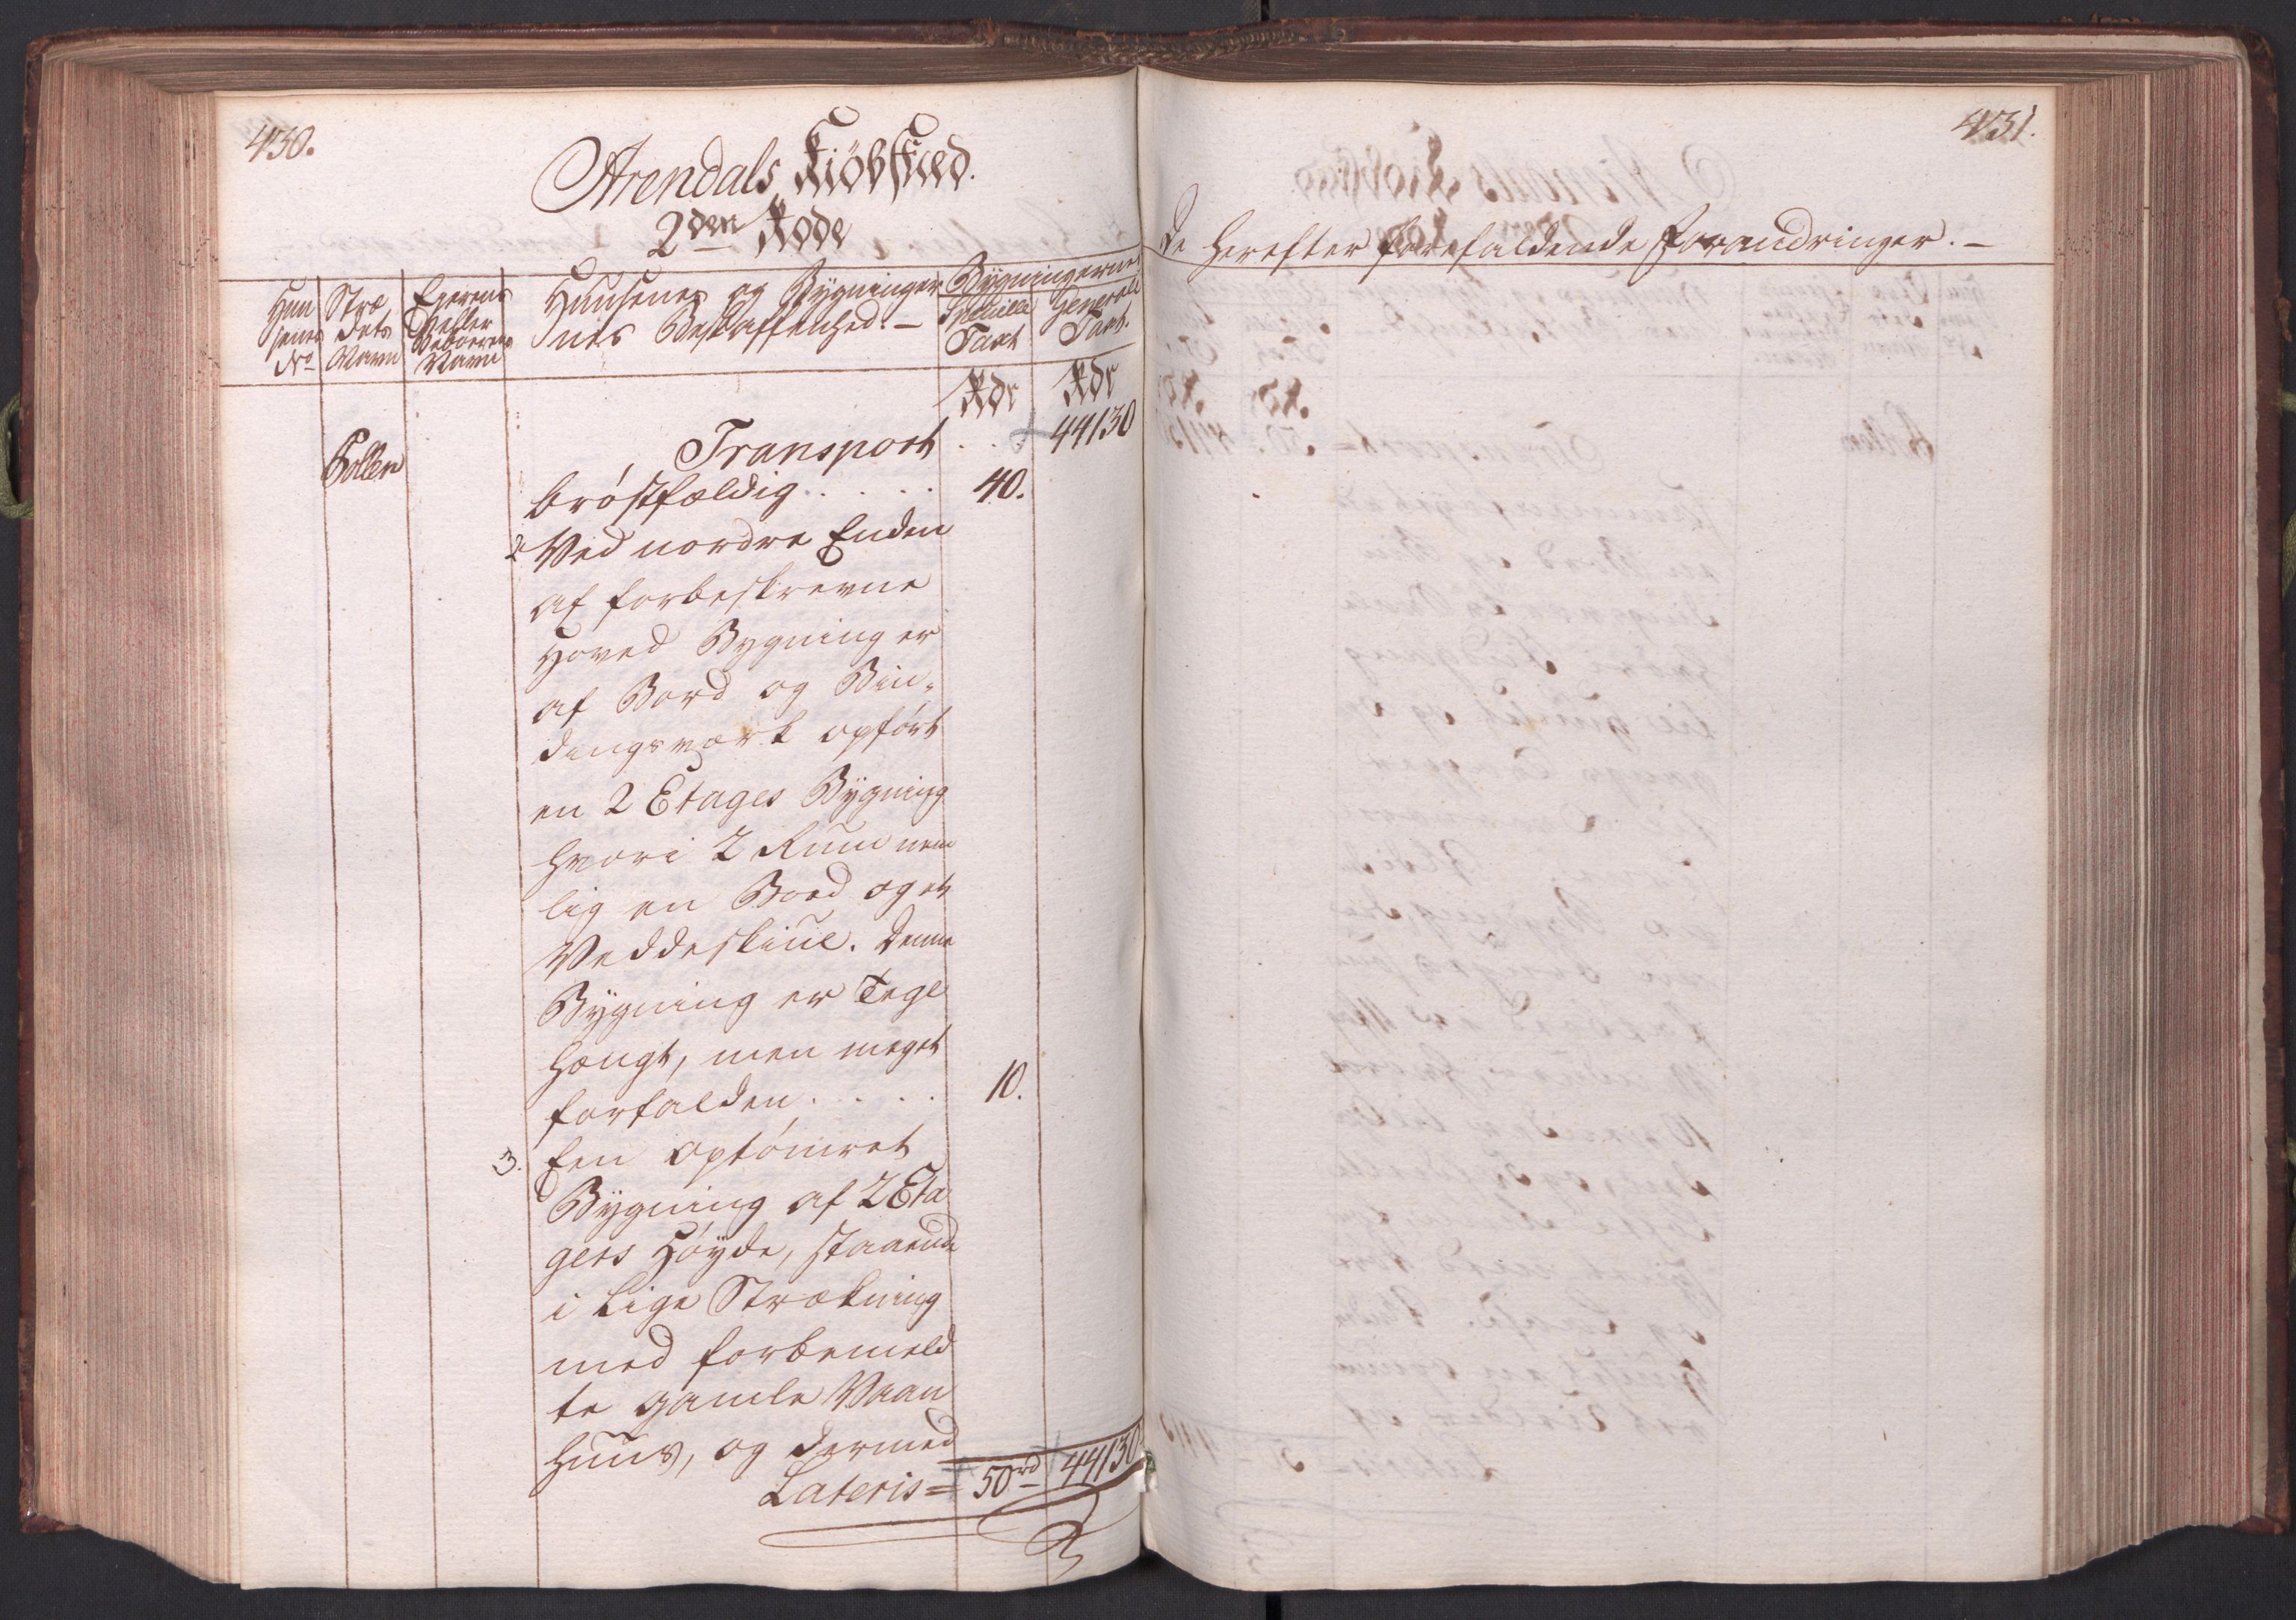 430.
Arendals Kiöbstæd.
2den Rode
Huusenes No
Strædets Navn
Eierens eller Beboerens Navn
Huusenes og Bygningernes Beskaffenhed. —
Bygningernes
Specielle Taxt
Generale Taxt.
Rdr Rdr
Transport . . 44130
Pollen
brøstfældig . . . . . 40.
2 Ved nordre Enden
af forbeskrevne
Hoved Bygning er
af Bord og Bin-
dingsværk opført
en 2 Etages Bygning
hvori 2 Rum nem
lig en Boed og et
Veddeskiul. Denne
Bygning er Tegl
hængt, men meget
forfalden . . . . . 10.
3. Een optømret
Bygning af 2 Eta
gers Høyde, staaende
i lige Strækning
med forbemeld
te gamle Vaan
huus, og dermed
Lateris = 50rd 44130
431.
De herefter forefaldende Forandringer. —